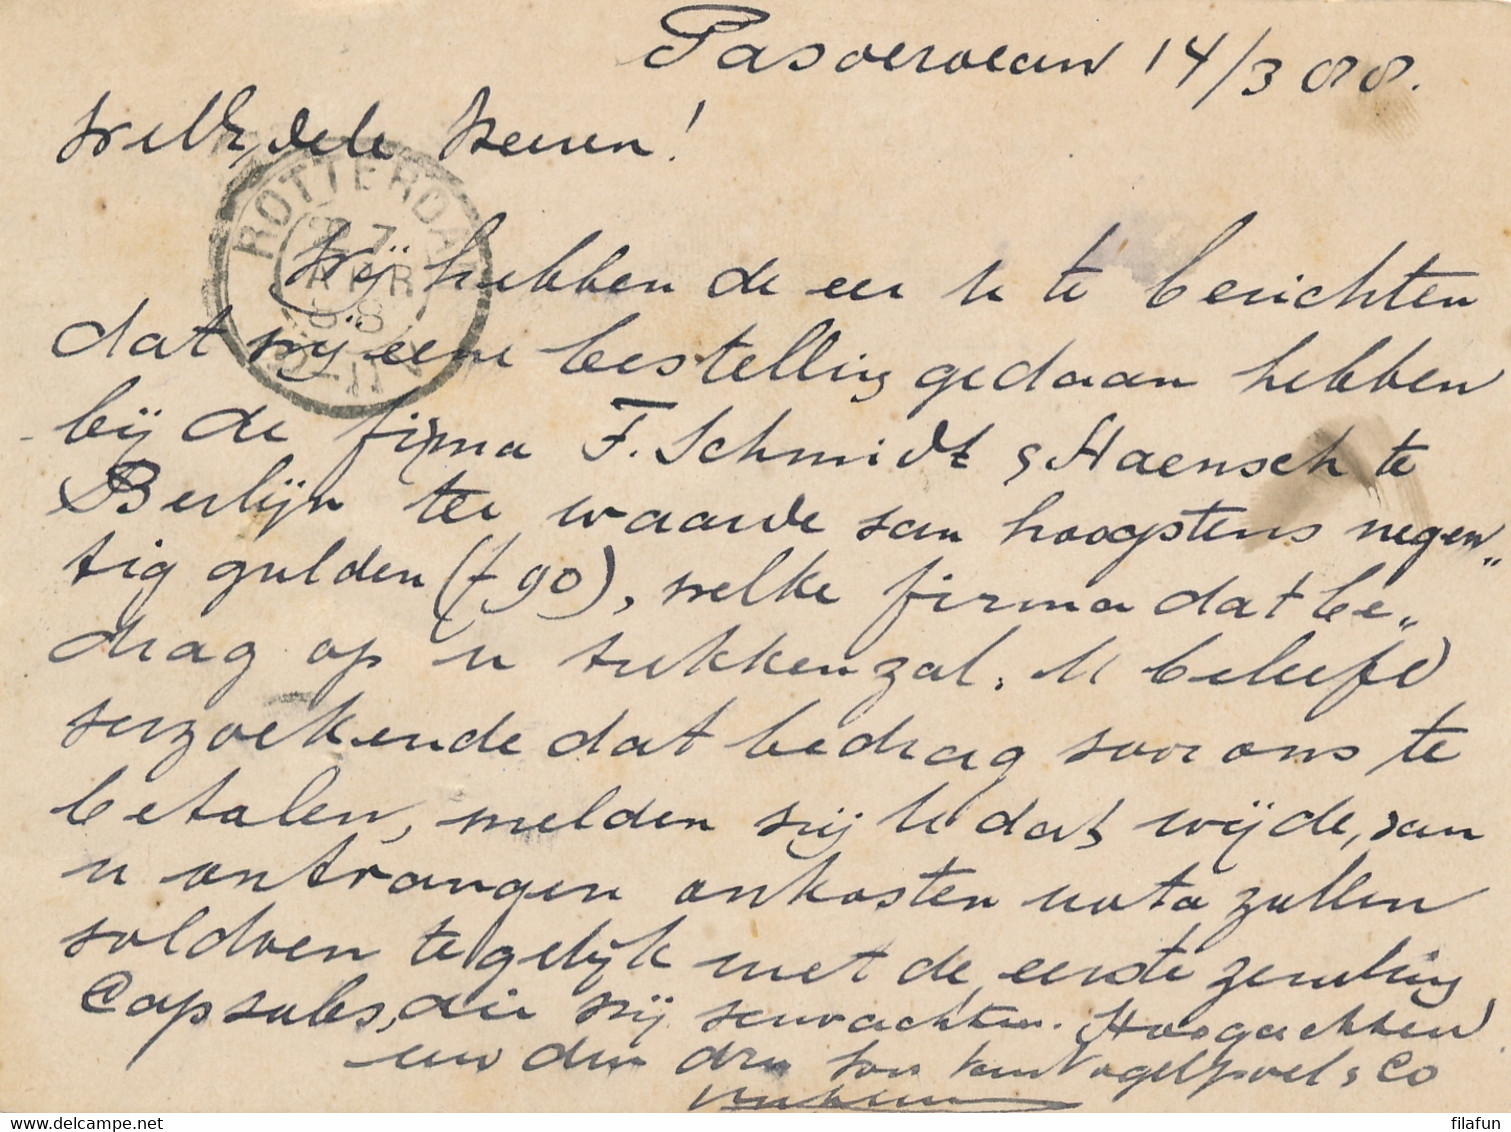 Pasoeroean 14/3 88.
WelEdele Heeren!
ROTTERDAM
27
APR
88
Wij hebben de eer U te berichten
dat wij eene bestelling gedaan hebben
bij de firma F. Schmidt & Haensch te
Berlijn ter waarde van hoogstens negen„
tig gulden (f 90), welke firma dat be„
drag op U trekken zal. U beleefd
verzoekende dat bedrag voor ons te
betalen, melden wij U dat wijde, van
U ontvangen onkosten nota zullen
voldoen tegelijk met de eerste zending
Capsules, die wij verwachten. Hoogachtend
uw dw drn
Vogelpoel & Co
filafun